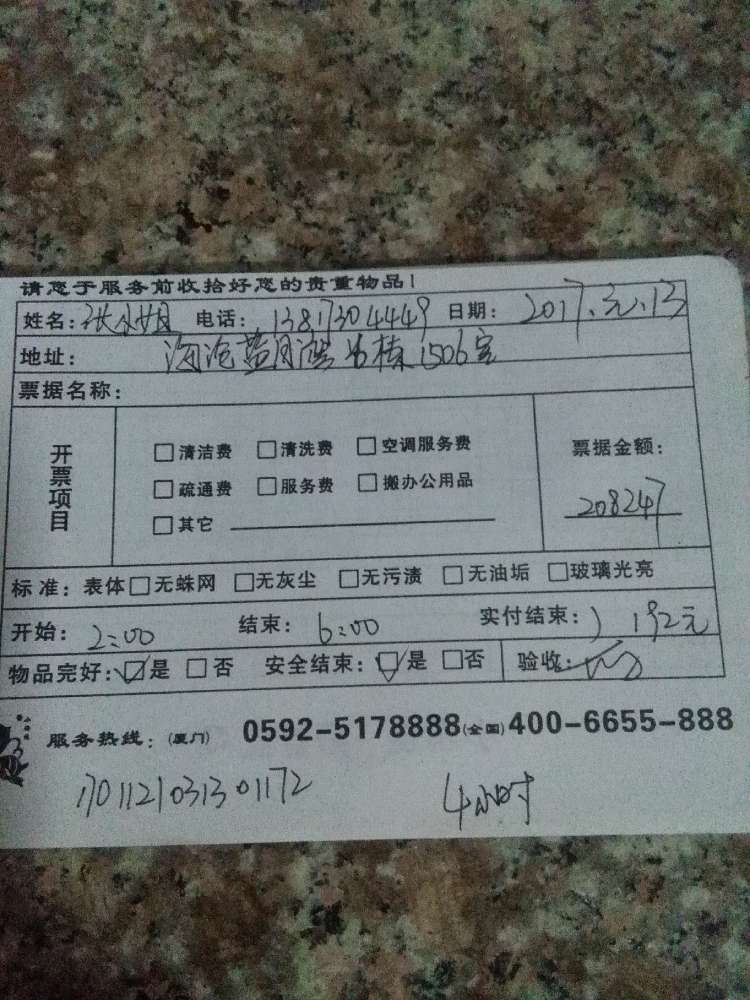 请您于服务前收拾好您的贵重物品!
姓名: 张小姐 电话: 13817304449 日期: 2017.元.13
地址: 海沧蓝月湾 栋1506室
票据名称:
开票项目
□清洁费 □清洗费 □空调服务费
□疏通费 □服务费 □搬办公用品
□其它
票据金额:
208247
标准: 表体□无蛛网 □无灰尘 □无污渍 □无油垢 □玻璃光亮
开始: 2:00 结束: 6:00 实付结束: 192元
物品完好: ☑是 □否 安全结束: ☑是 □否 验收:
服务热线: (厦门) 0592-5178888 (全国) 400-6655-888
1701121031301172 4小时